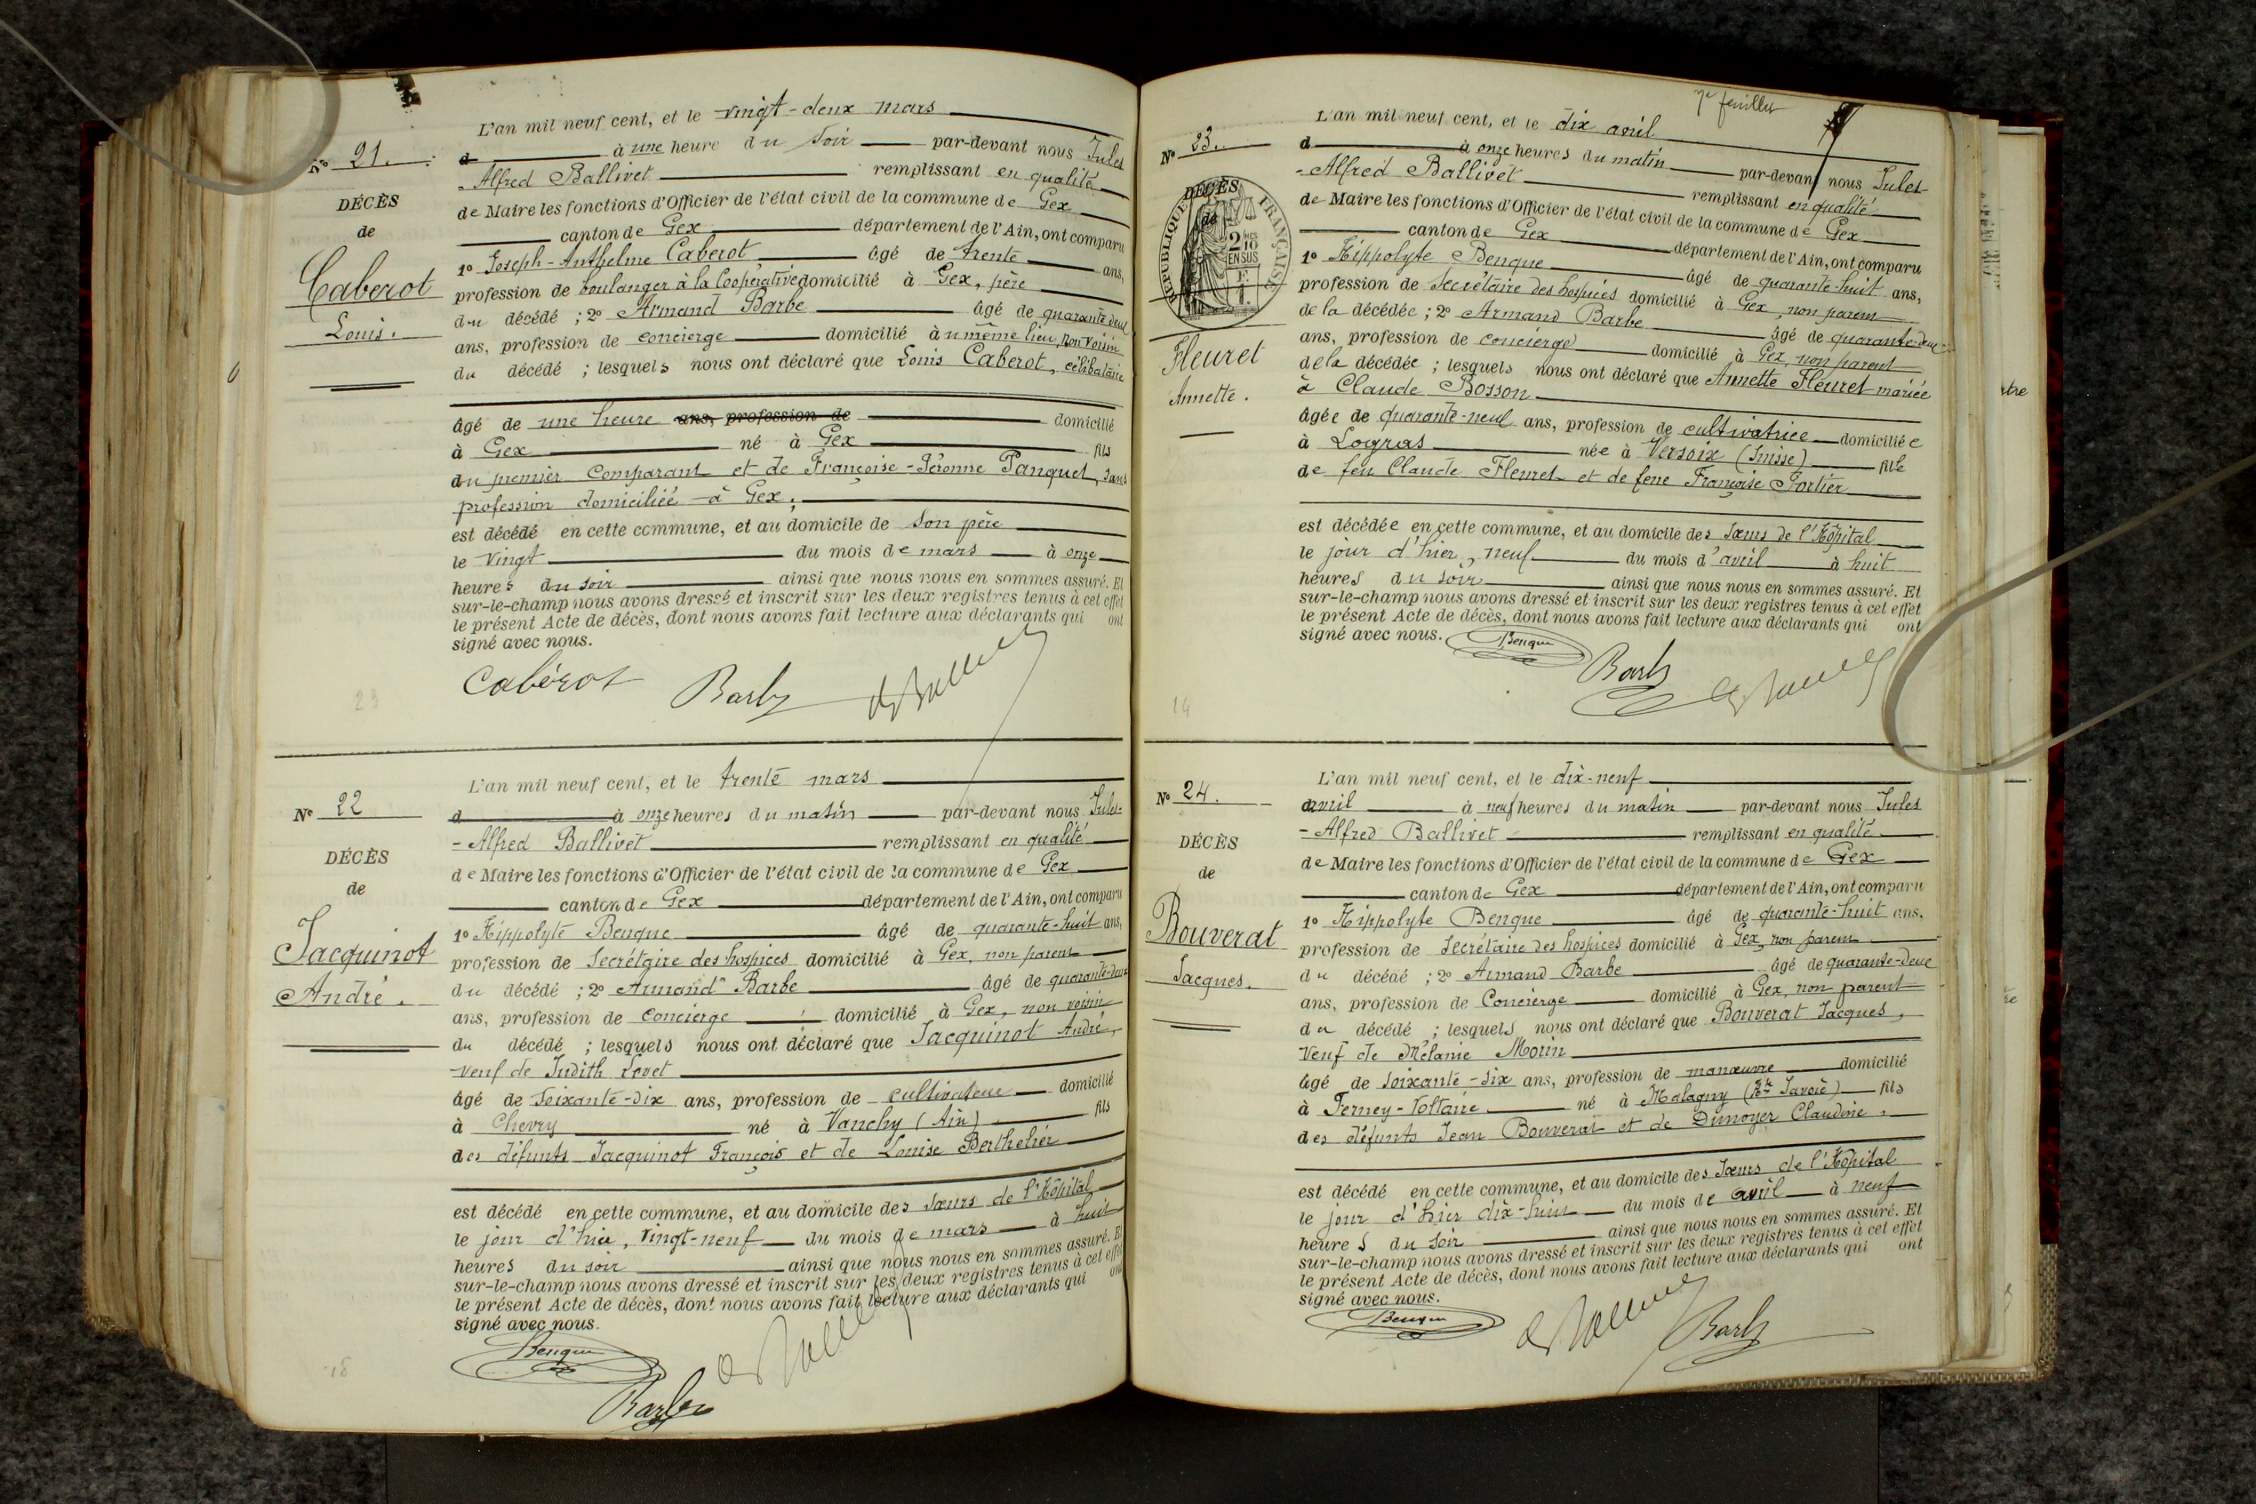 L'an mil neuf cent, et le vingt-deux mars
N° 21.
d à une heure du soir par-devant nous Jules
-Alfred Ballivet remplissant en qualité
DÉCÈS
de Maire les fonctions d'Officier de l'état civil de la commune de Gex
de
canton de Gex département de l'Ain, ont comparu
Caberot
1° Joseph-Anthelme Caberot âgé de trente ans,
profession de boulanger à la Coopérative domicilié à Gex, père
Louis.
du décédé ; 2° Armand Barbe âgé de quarante-deux
ans, profession de concierge domicilié au même lieu, non voisin
du décédé ; lesquels nous ont déclaré que Louis Caberot, célibataire
âgé de une heure ans, profession de domicilié
à Gex né à Gex fils
du premier comparant et de Françoise-Péronne Panquet, sans
profession domiciliée à Gex,
est décédé en cette commune, et au domicile de son père
le vingt du mois de mars à onze
heures du soir ainsi que nous nous en sommes assuré. Et
sur-le-champ nous avons dressé et inscrit sur les deux registres tenus à cet effet
le présent Acte de décès, dont nous avons fait lecture aux déclarants qui ont
signé avec nous.
Cabérot Barbe
23
L'an mil neuf cent, et le trente mars
N° 22
d à onze heures du matin par-devant nous Jules-
-Alfred Ballivet remplissant en qualité
DÉCÈS
de Maire les fonctions d'Officier de l'état civil de la commune de Gex
de
canton de Gex département de l'Ain, ont comparu
Jacquinot
1° Hippolyte Benque âgé de quarante-huit ans,
profession de Secrétaire des hospices domicilié à Gex, non parent
André.
du décédé ; 2° Armand Barbe âgé de quarante-deux
ans, profession de concierge domicilié à Gex, non voisin
du décédé ; lesquels nous ont déclaré que Jacquinot André,
veuf de Judith
âgé de soixante-dix ans, profession de cultivateur domicilié
à Chevry né à Vanchy (Ain) fils
des défunts Jacquinot François et de Louise Berthelier
est décédé en cette commune, et au domicile des sœurs de l'Hôpital
le jour d'hier, vingt-neuf du mois de mars à huit
heures du soir ainsi que nous nous en sommes assuré. Et
sur-le-champ nous avons dressé et inscrit sur les deux registres tenus à cet effet
le présent Acte de décès, dont nous avons fait lecture aux déclarants qui ont
signé avec nous.
Benque
Barbe
18
7e feuillet
L'an mil neuf cent, et le dix avril
N° 23.
d à onze heures du matin par-devant nous Jules-
-Alfred Ballivet remplissant en qualité
DÉCÈS
de Maire les fonctions d'Officier de l'état civil de la commune de Gex
de
RÉPUBLIQUE FRANÇAISE
2/10 EN SUS
canton de Gex département de l'Ain, ont comparu
1° Hippolyte Benque âgé de quarante-huit ans,
profession de Secrétaire des hospices domicilié à Gex, non parent
de la décédée ; 2° Armand Barbe âgé de quarante-deux
Fleuret
ans, profession de concierge domicilié à Gex, non parent
Annette.
de la décédée ; lesquels nous ont déclaré que Annette Fleuret mariée
à Claude Bosson
âgée de quarante-neuf ans, profession de cultivatrice domiciliée
à Logras née à Versoix (Suisse) fille
de feu Claude Fleuret et de feue Françoise Portier
est décédée en cette commune, et au domicile des sœurs de l'Hôpital
le jour d'hier, neuf du mois d'avril à huit
heures du soir ainsi que nous nous en sommes assuré. Et
sur-le-champ nous avons dressé et inscrit sur les deux registres tenus à cet effet
le présent Acte de décès, dont nous avons fait lecture aux déclarants qui ont
signé avec nous.
Benque Barbe
14
L'an mil neuf cent, et le dix-neuf
N° 24.
avril à neuf heures du matin par-devant nous Jules
-Alfred Ballivet remplissant en qualité
DÉCÈS
de Maire les fonctions d'Officier de l'état civil de la commune de Gex
de
canton de Gex département de l'Ain, ont comparu
Bouverat
1° Hippolyte Benque âgé de quarante-huit ans,
profession de secrétaire des hospices domicilié à Gex, non parent
Jacques.
du décédé ; 2° Armand Barbe âgé de quarante-deux
ans, profession de Concierge domicilié à Gex, non parent
du décédé ; lesquels nous ont déclaré que Bouverat Jacques,
veuf de Mélanie Morin
âgé de soixante-six ans, profession de manœuvre domicilié
à Ferney-Voltaire né à Malagny (Hte Savoie) fils
des défunts Jean Bouverat et de Dunoyer Claudine.
est décédé en cette commune, et au domicile des sœurs de l'Hôpital
le jour d'hier dix-huit du mois de avril à neuf
heures du soir ainsi que nous nous en sommes assuré. Et
sur-le-champ nous avons dressé et inscrit sur les deux registres tenus à cet effet
le présent Acte de décès, dont nous avons fait lecture aux déclarants qui ont
signé avec nous.
Benque Barbe